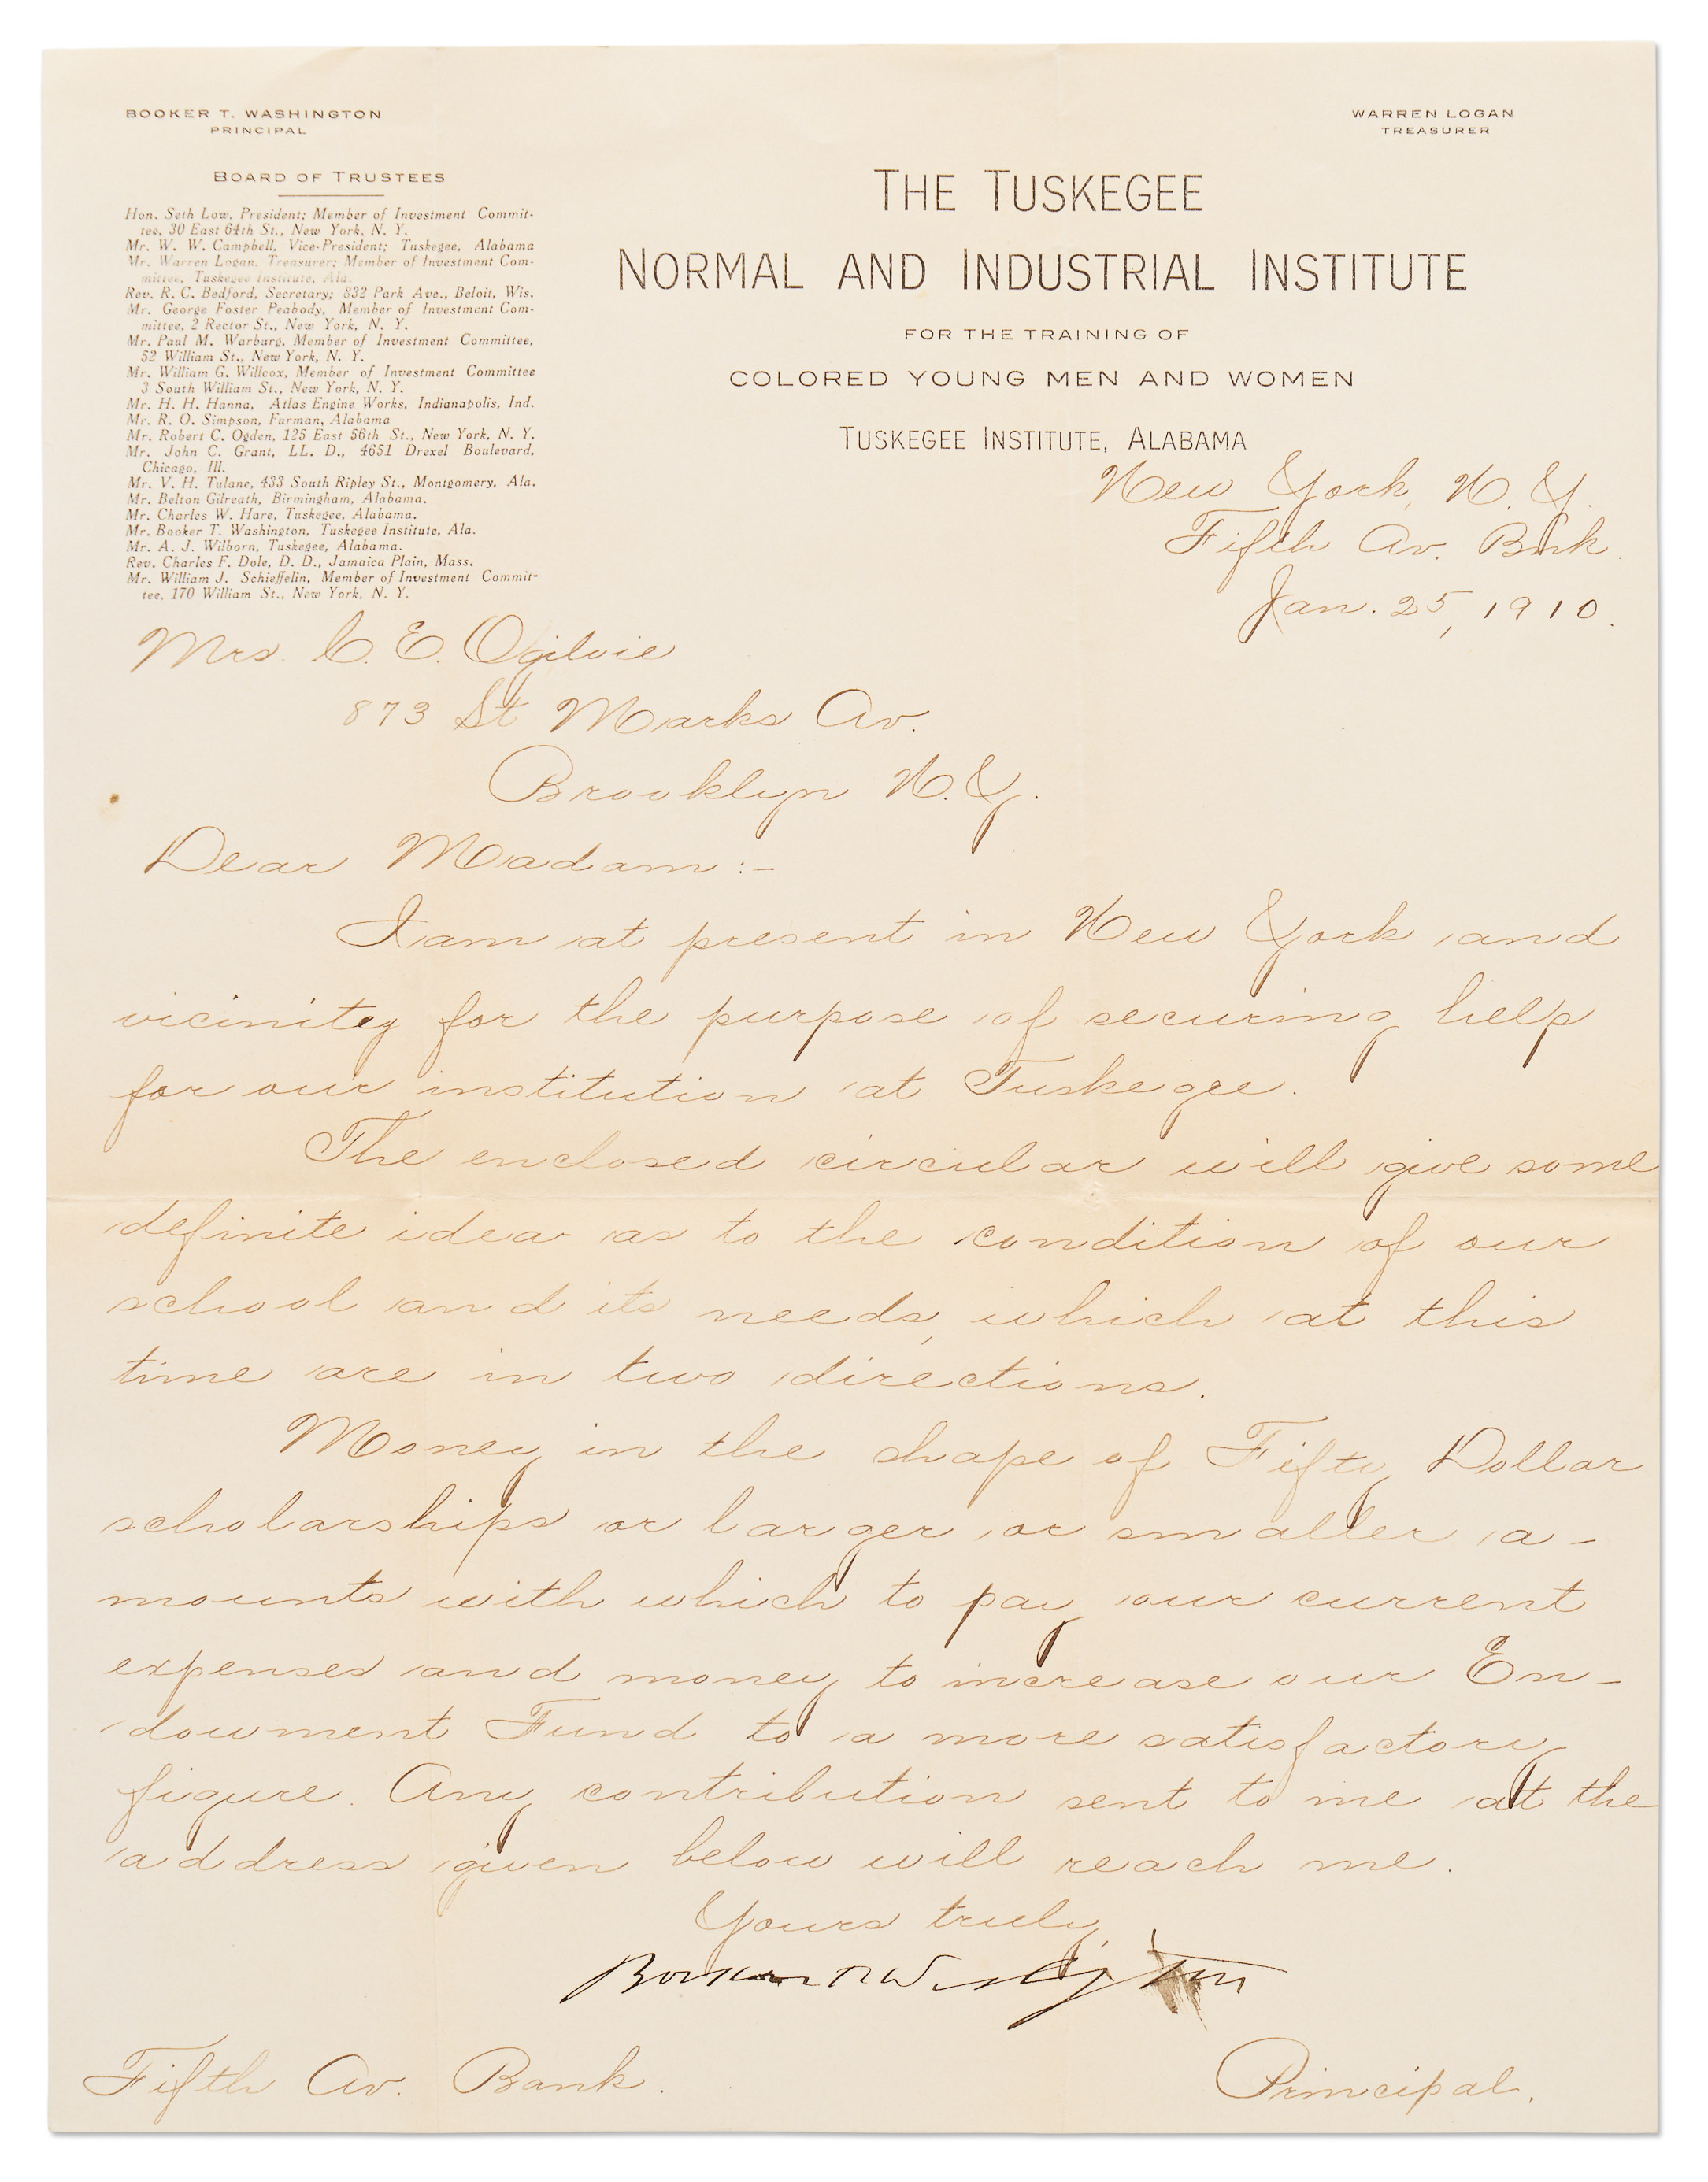 BOOKER T. WASHINGTON
PRINCIPAL
WARREN LOGAN
TREASURER
BOARD OF TRUSTEES
Hon. Seth Low, President; Member of Investment Commit-
tee, 30 East 64th St., New York, N. Y.
Mr. W. W. Campbell, Vice-President; Tuskegee, Alabama
Mr. Warren Logan, Treasurer; Member of Investment Com-
mittee, Tuskegee Institute, Ala.
Rev. R. C. Bedford, Secretary; 832 Park Ave., Beloit, Wis.
Mr. George Foster Peabody, Member of Investment Com-
mittee, 2 Rector St., New York, N. Y.
Mr. Paul M. Warburg, Member of Investment Committee,
52 William St., New York, N. Y.
Mr. William G. Willcox, Member of Investment Committee
3 South William St., New York, N. Y.
Mr. H. H. Hanna, Atlas Engine Works, Indianapolis, Ind.
Mr. R. O. Simpson, Furman, Alabama
Mr. Robert C. Ogden, 125 East 56th St., New York, N. Y.
Mr. John C. Grant, LL. D., 4651 Drexel Boulevard,
Chicago, Ill.
Mr. V. H. Tulane, 433 South Ripley St., Montgomery, Ala.
Mr. Belton Gilreath, Birmingham, Alabama.
Mr. Charles W. Hare, Tuskegee, Alabama.
Mr. Booker T. Washington, Tuskegee Institute, Ala.
Mr. A. J. Wilborn, Tuskegee, Alabama.
Rev. Charles F. Dole, D. D., Jamaica Plain, Mass.
Mr. William J. Schieffelin, Member of Investment Commit-
tee, 170 William St., New York, N. Y.
THE TUSKEGEE
NORMAL AND INDUSTRIAL INSTITUTE
FOR THE TRAINING OF
COLORED YOUNG MEN AND WOMEN
TUSKEGEE INSTITUTE, ALABAMA
New York, N. Y.
Fifth Av. Bnk.
Jan. 25, 1910.
Mrs. C. E. Ogilvie
873 St Marks Av.
Brooklyn N.Y.
Dear Madam:-
I am at present in New York and
vicinity for the purpose of securing help
for our institution at Tuskegee.
The enclosed circular will give some
definite idea as to the condition of our
school and its needs, which at this
time are in two directions.
Money in the shape of Fifty Dollar
scholarships or larger or smaller a-
mounts with which to pay our current
expenses and money to increase our En-
dowment Fund to a more satisfactory
figure. Any contribution sent to me at the
address given below will reach me.
Yours truly,
Booker T Washington
Fifth Av. Bank.
Principal.